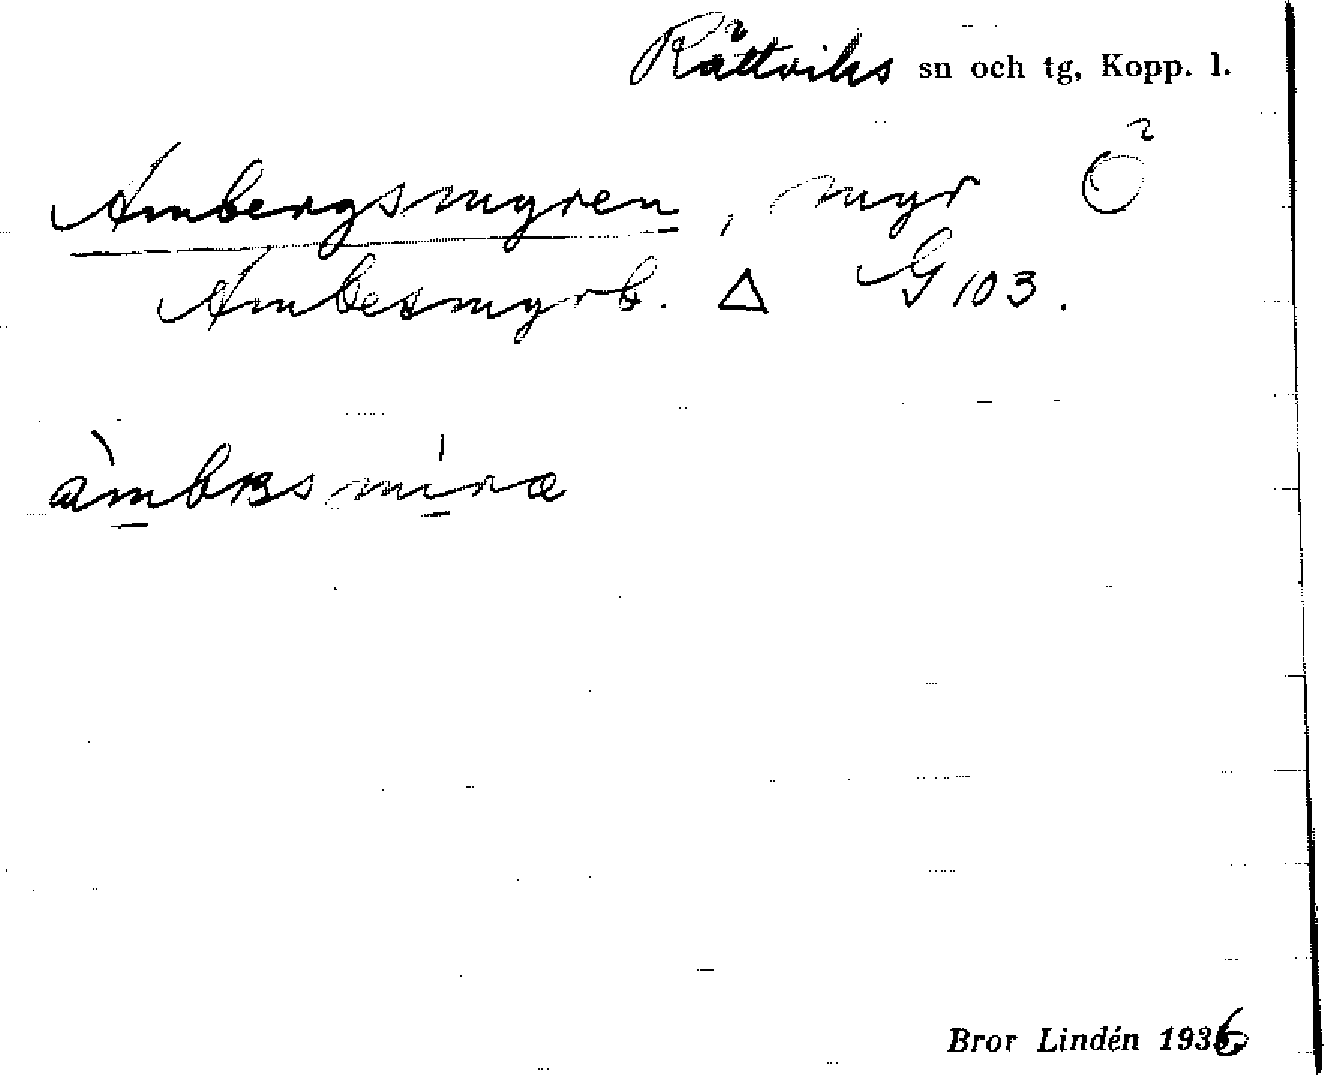 Rättviks sn och tg, Kopp. l.
Ambergsmyren, myr Ö
Ambesmyrb. △ G 103.
Bror Lindén 1936